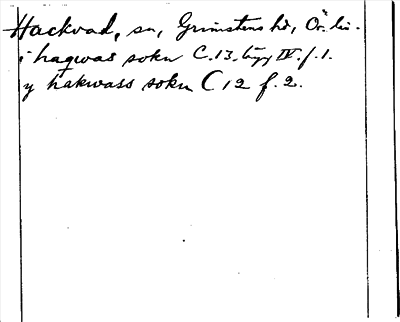 Hackvad, sn, Grimstens hd, Ör. län.
i haqwas sokn C. 13. lägg IV. f. 1.
y hakwass sokn C 12 f. 2.